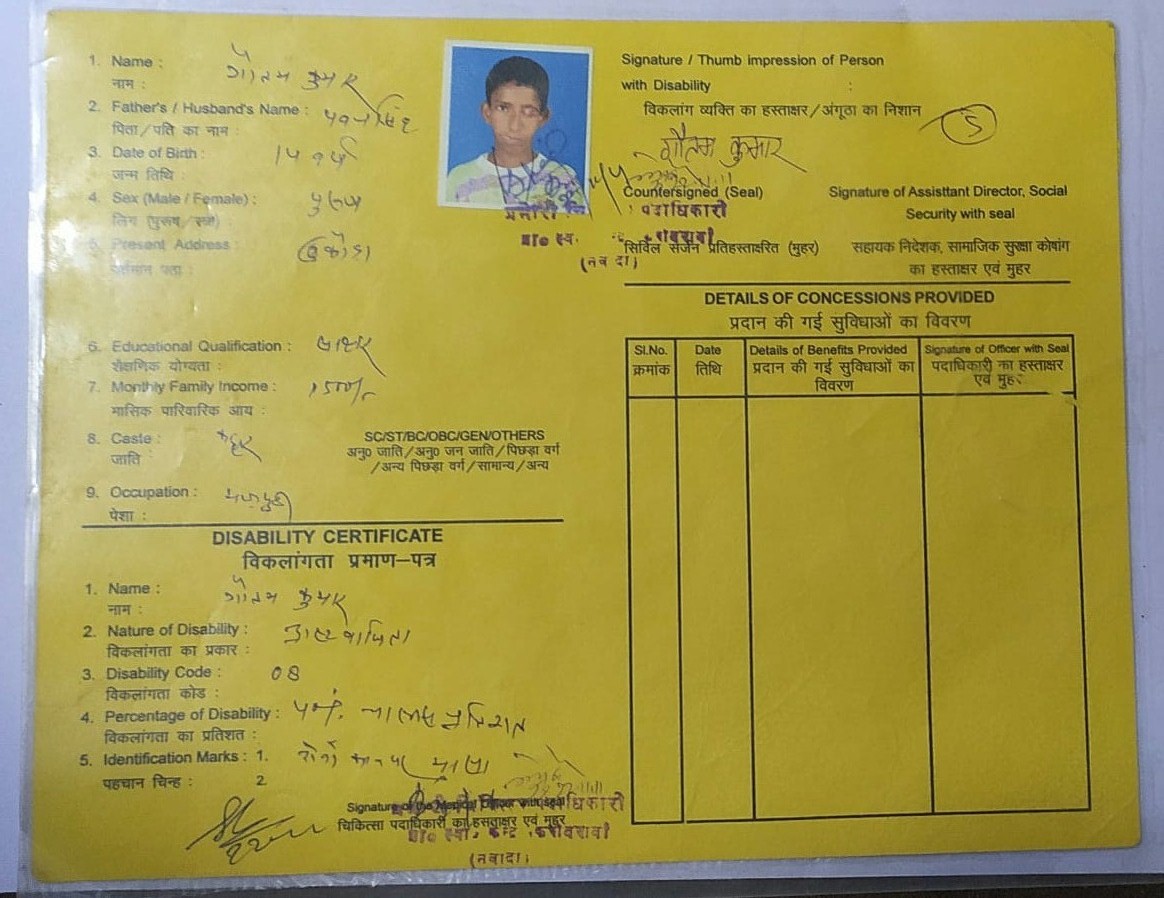 1. Name : गौतम कुमार
नाम :
2. Father's / Husband's Name :
पिता/पति का नाम :
3. Date of Birth : 14 वर्ष
जन्म तिथि :
4. Sex (Male / Female) : पुरुष
लिंग (पुरूष/स्त्री) :
5. Present Address :
वर्तमान पता :
6. Educational Qualification : साक्षर
शैक्षणिक योग्यता :
7. Monthly Family Income : 1500/-
मासिक पारिवारिक आय :
8. Caste :
जाति :
SC/ST/BC/OBC/GEN/OTHERS
अनु0 जाति/अनु0 जन जाति/पिछड़ा वर्ग
/अन्य पिछड़ा वर्ग/सामान्य/अन्य
9. Occupation :
पेशा :
DISABILITY CERTIFICATE
विकलांगता प्रमाण-पत्र
1. Name : गौतम कुमार
नाम :
2. Nature of Disability :
विकलांगता का प्रकार :
3. Disability Code : 08
विकलांगता कोड :
4. Percentage of Disability :
विकलांगता का प्रतिशत :
5. Identification Marks : 1.
पहचान चिन्ह : 2.
Signature of the Medical Officer with seal
चिकित्सा पदाधिकारी का हस्ताक्षर एवं मुहर
(नवादा)
Signature / Thumb impression of Person
with Disability :
विकलांग व्यक्ति का हस्ताक्षर/अंगूठा का निशान
5
गौतम कुमार
Countersigned (Seal)
पदाधिकारी
सिविल सर्जन प्रतिहस्ताक्षरित (मुहर)
(नवादा)
Signature of Assisttant Director, Social
Security with seal
सहायक निदेशक, सामाजिक सुरक्षा कोषांग
का हस्ताक्षर एवं मुहर
DETAILS OF CONCESSIONS PROVIDED
प्रदान की गई सुविधाओं का विवरण
Sl.No. Date Details of Benefits Provided Signature of Officer with Seal
क्रमांक तिथि प्रदान की गई सुविधाओं का पदाधिकारी का हस्ताक्षर
विवरण एवं मुहर